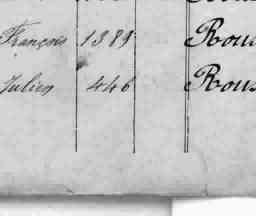 François 1389 Rous
Julien 446 Rous